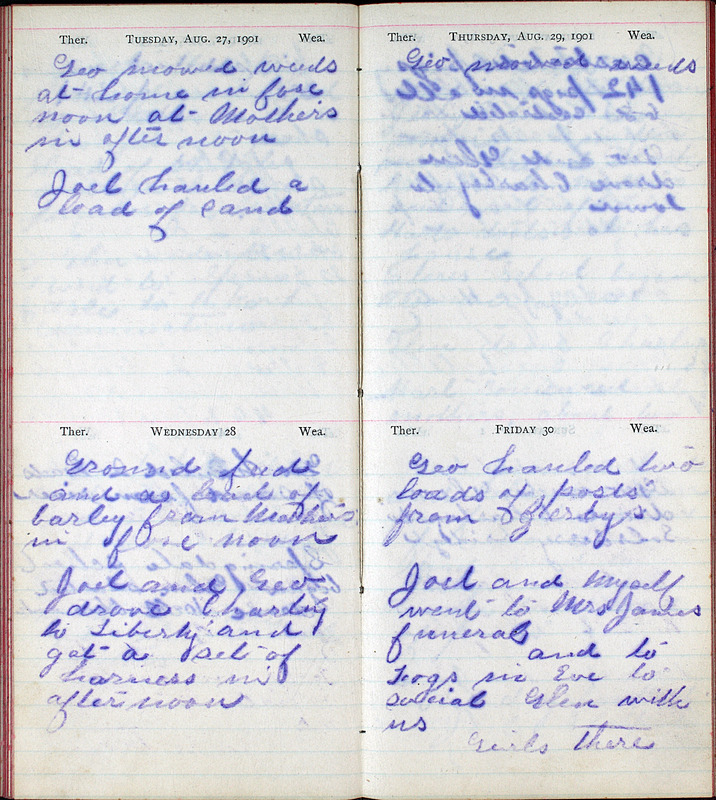 Ther. Tuesday, Aug. 27, 1901 Wea.
Geo mowed weeds
at home in fore
noon at Mothers
in after noon
Joel hauled a
load of sand
Ther. Wednesday 28 Wea.
Ground feed
and a load of
barley from Mothers
in fore noon
Joel and Geo
drove Charley
to Liberty and
got a set of
harness in
after noon
Ther. Thursday, Aug. 29, 1901 Wea.
Geo mowed weeds
Ther. Friday 30 Wea.
Geo hauled two
loads of posts
from
Joel and Myself
went to Mrs
funeral
and to
in Eve to
social Glen with
us
Girls there